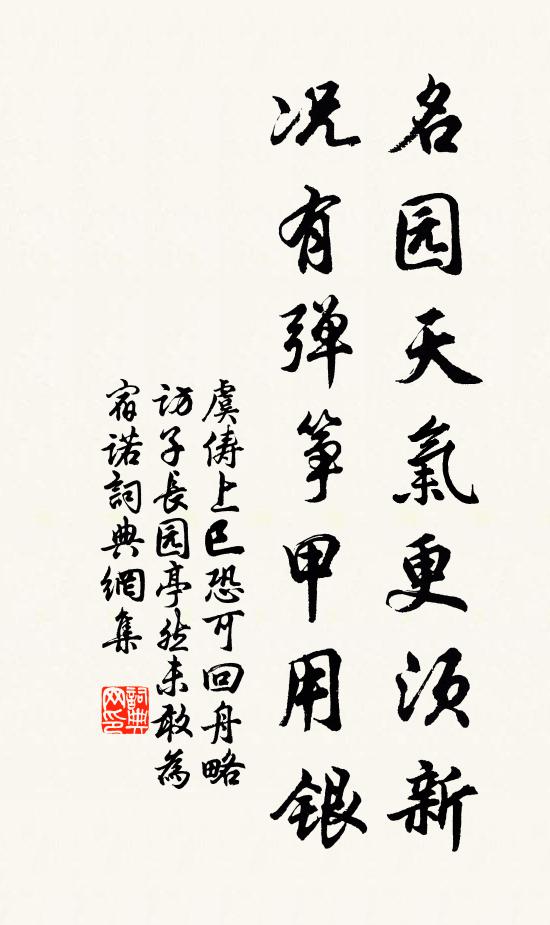 名园天氣更须新
况有弹筝甲用银
虞俦上巳恐可回舟略
访子長园亭然未敢為
宿诺詞典網集
詞典
网印